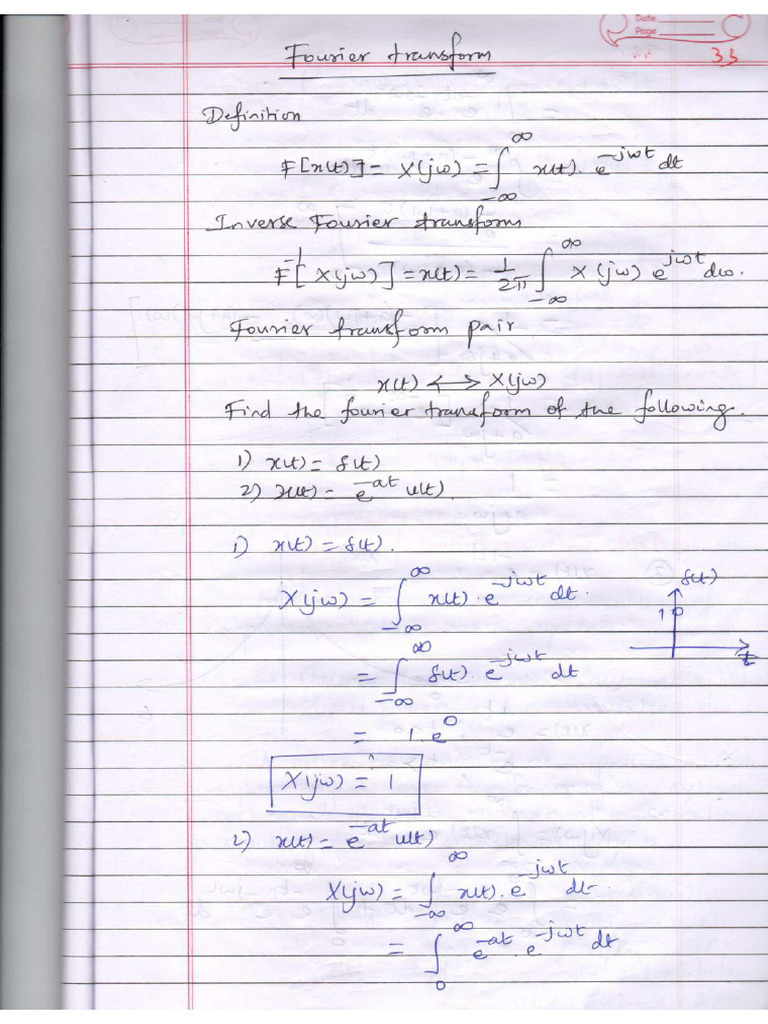 Date
Page
33
Fourier transform
Definition
F[x(t)] = X(jω) = ∫_{-∞}^{∞} x(t). e^{-jωt} dt
Inverse Fourier transform
F^{-1}[X(jω)] = x(t) = 1/2π ∫_{-∞}^{∞} X(jω) e^{jωt} dω.
Fourier transform pair
x(t) ↔ X(jω)
Find the fourier transform of the following.
1) x(t) = δ(t)
2) x(t) = e^{-at} u(t).
1) x(t) = δ(t).
X(jω) = ∫_{-∞}^{∞} x(t). e^{-jωt} dt.
δ(t)
1
t
= ∫_{-∞}^{∞} δ(t). e^{-jωt} dt
= 1. e^{0}
X(jω) = 1
2) x(t) = e^{-at} u(t)
X(jω) = ∫_{-∞}^{∞} x(t). e^{-jωt} dt.
= ∫_{0}^{∞} e^{-at}. e^{-jωt} dt